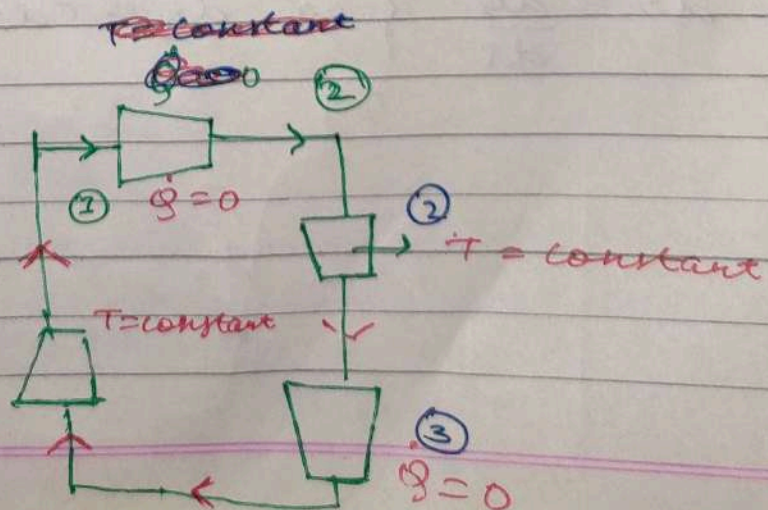 T = constant
0
②
① Q̇ = 0
②
T = constant
T = constant
③
Q̇ = 0